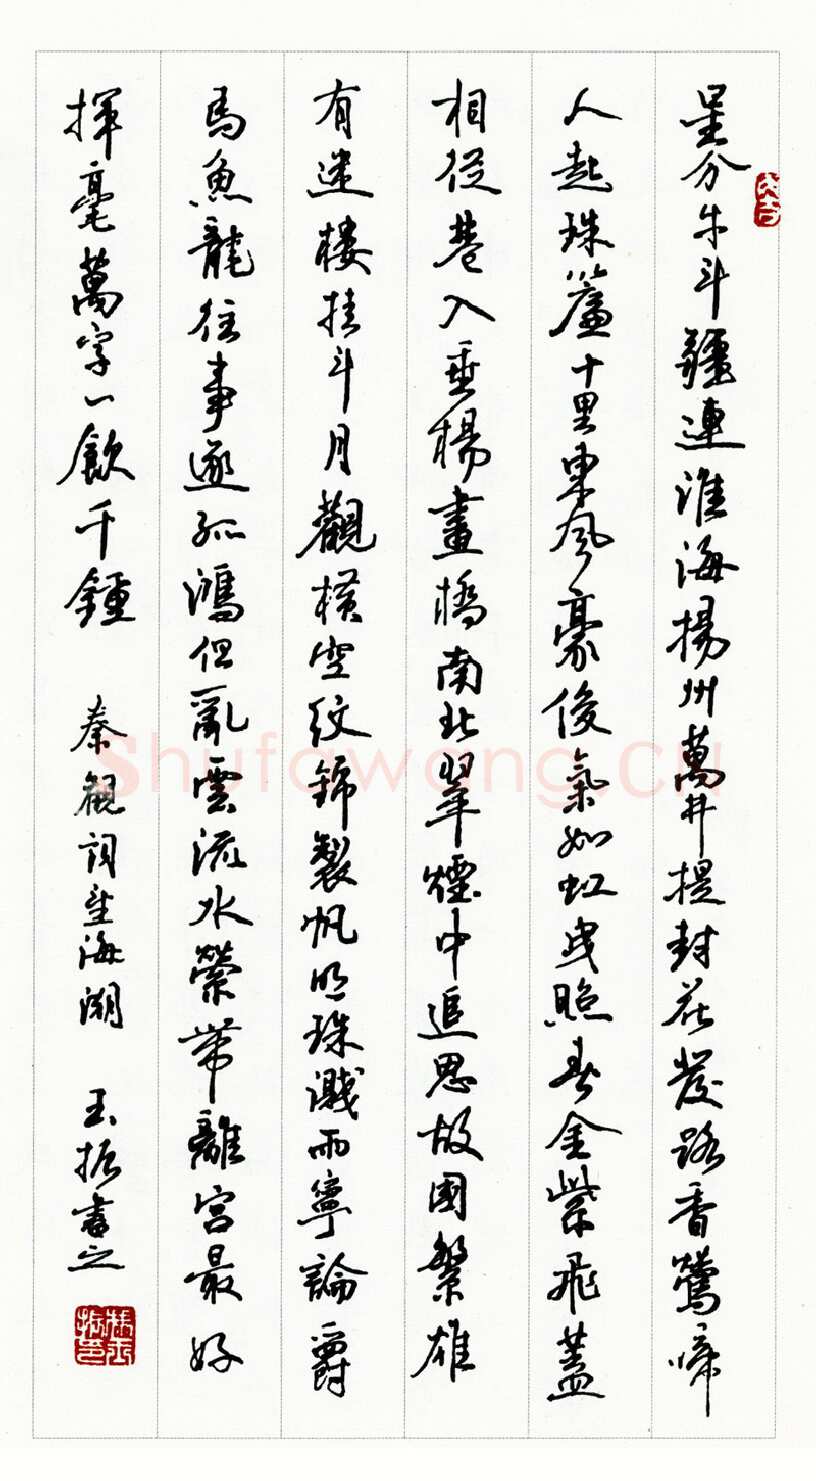 星分牛斗疆連淮海揚州萬井提封花發路香鶯啼
人起珠簾十里東風豪俊氣如虹曳照春金紫飛蓋
相從巷入垂楊畫橋南北翠煙中追思故國繁雄
有迷樓挂斗月觀橫空紋錦製帆明珠濺雨寧論爵
馬魚龍往事逐孤鴻但亂雲流水縈帶離宮最好
揮毫萬字一飲千鍾 秦觀詞望海潮 玉振書之
shufawang.cn